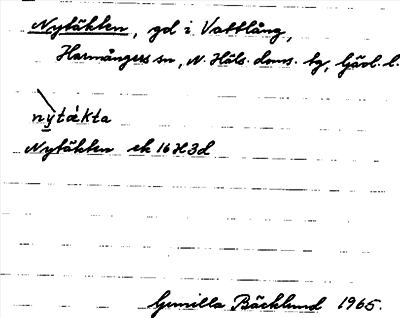 Nytäkten, gd i Vattlång,
Harmångers sn, N. Häls. doms. tg, Gävl. l.
nytäkta
Nytäkten ek 16H3d
Gunilla Bäcklund 1965.